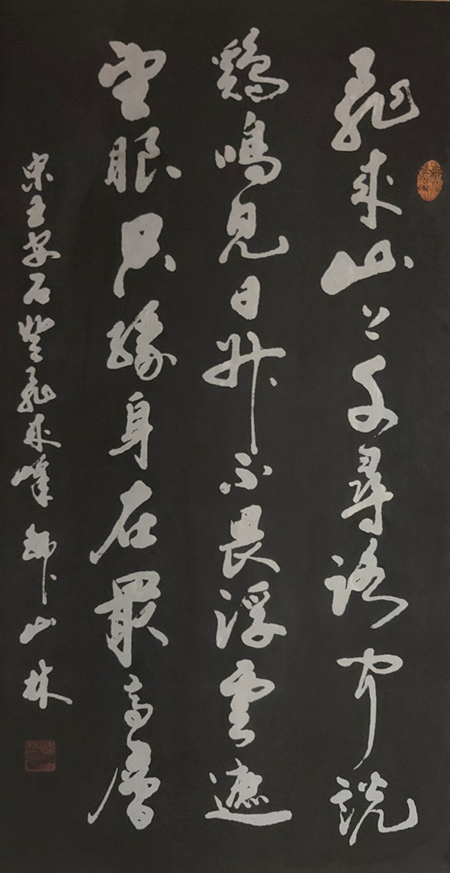 飛來山上千尋塔聞說
鷄鳴見日升不畏浮雲遮
望眼只緣身在最高層
宋王安石登飛來峰 山林